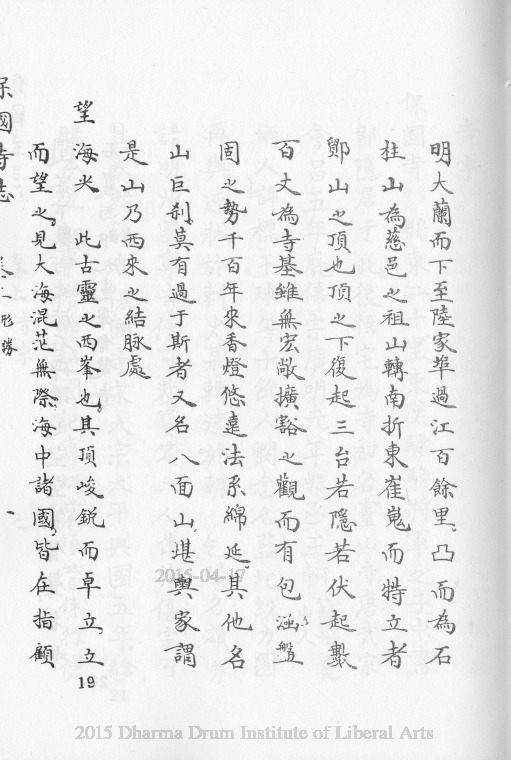 明大蘭而下至陸家埠過江百餘里凸而為石
柱山為慈邑之祖山轉南折東崔嵬而特立者
鄮山之頂也頂之下復起三台若隱若伏起䥫
百丈為寺基維無宏敞擴豁之觀而有包涵盤
固之勢千百年來香燈悠遠法系綿延其他名
山巨刹莫有過于斯者又名八面山堪輿家謂
是山乃西來之結脉處
望海尖 此古靈之西峯也其頂峻銳而卓立立
而望之見大海混茫無際海中諸國皆在指顧
保國寺志 卷一 形勝 一
19
2015-04-17
2015 Dharma Drum Institute of Liberal Arts